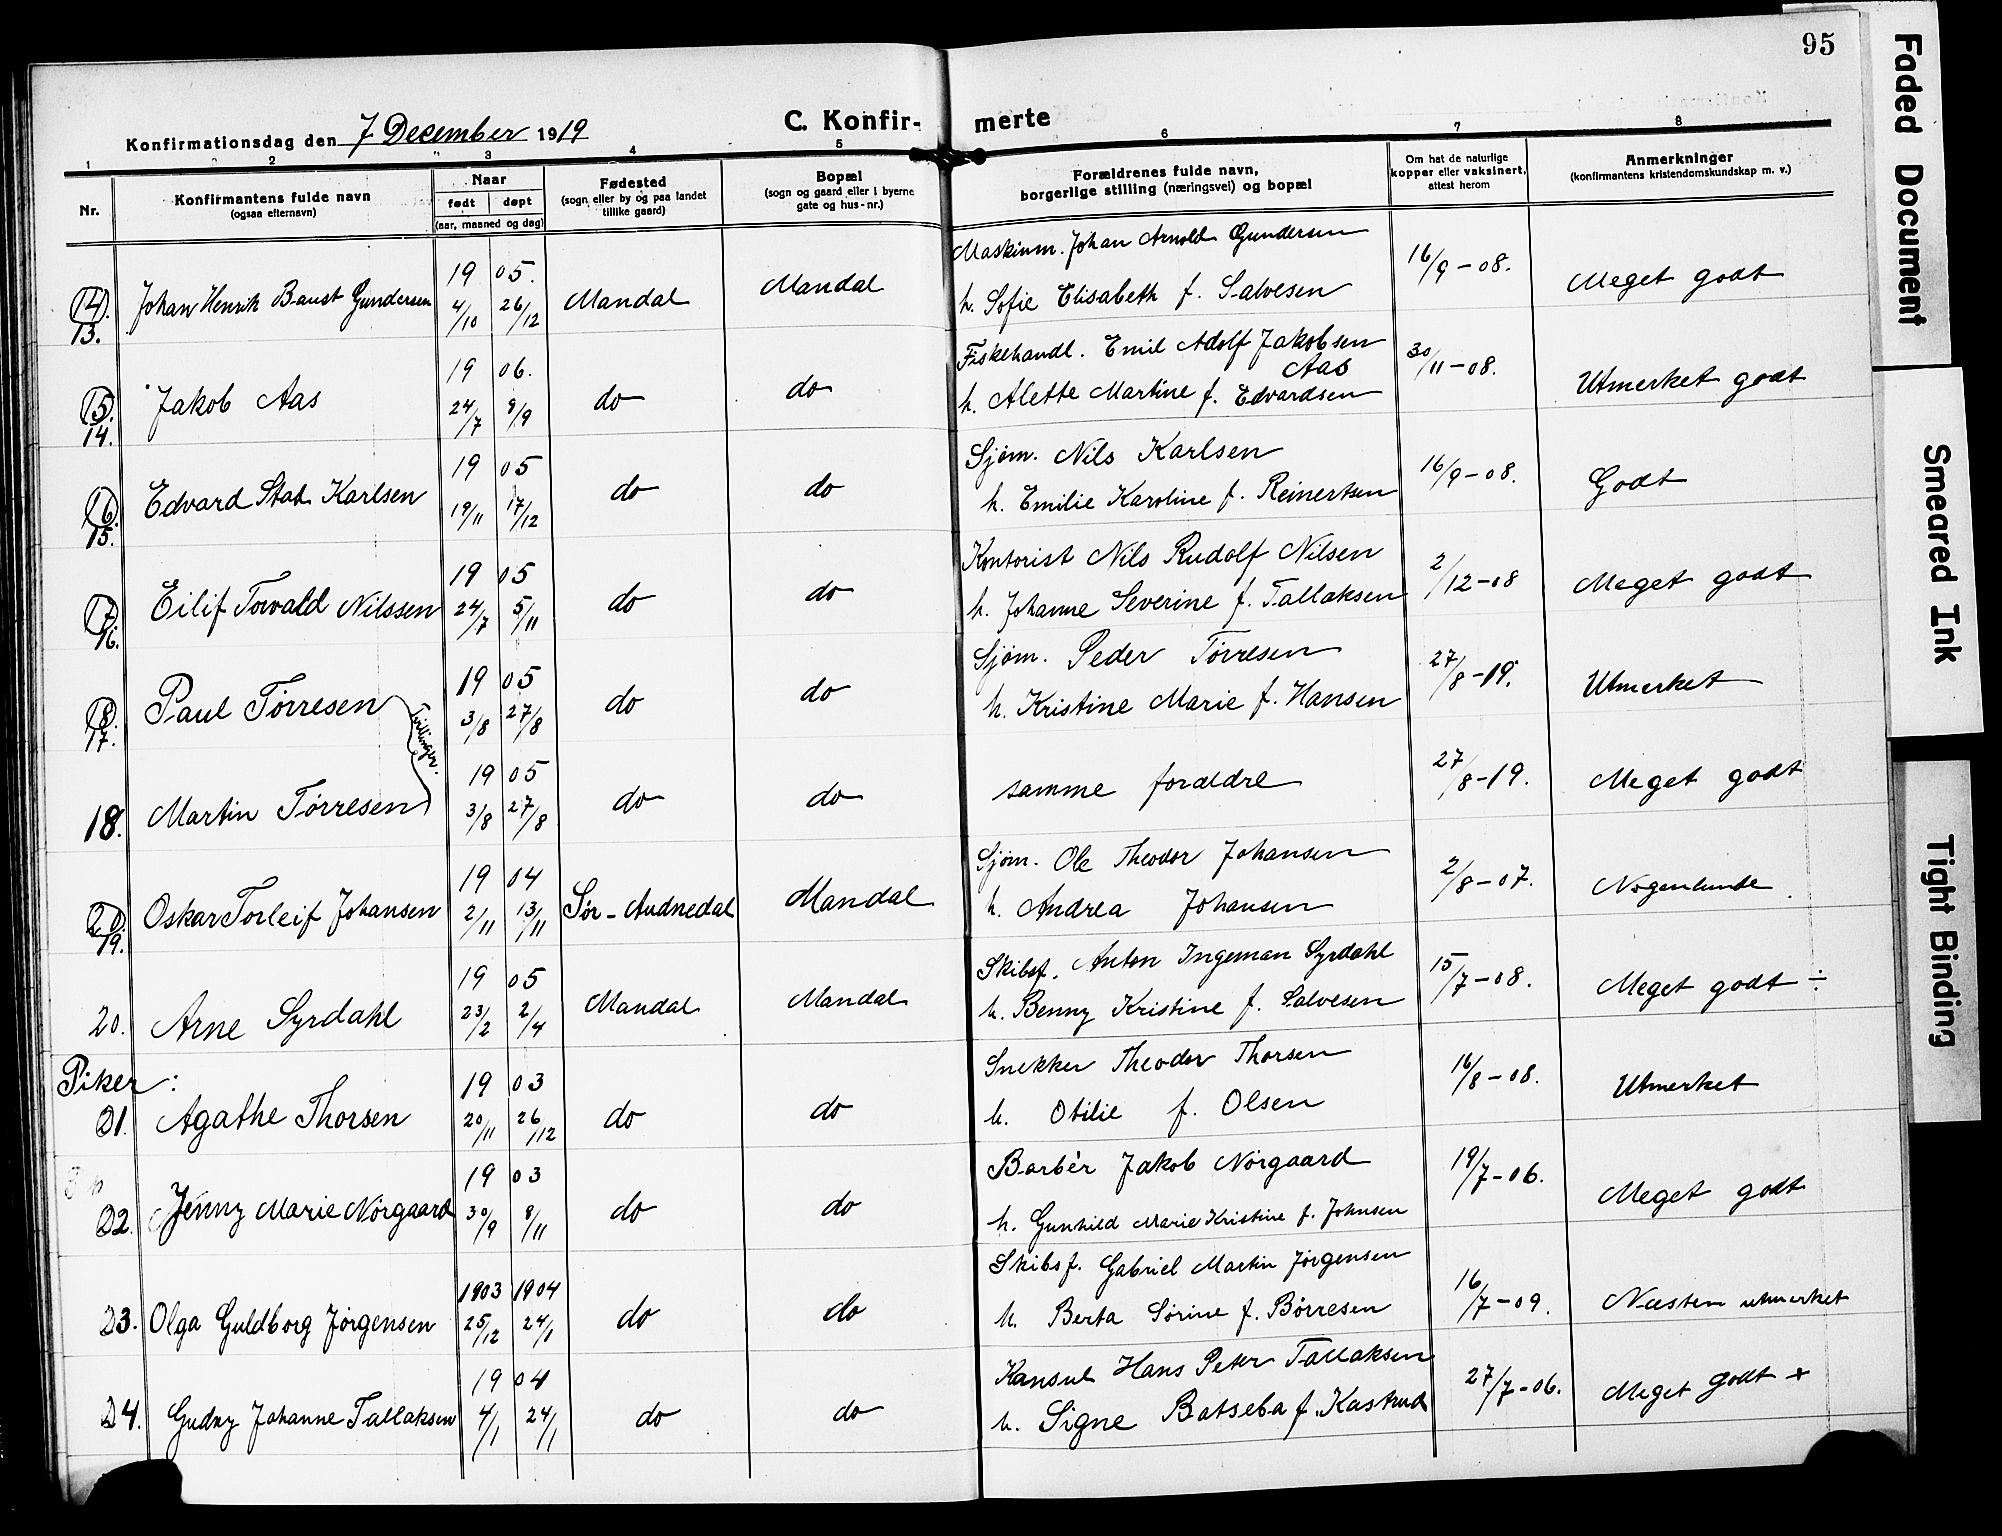 95
Konfirmationsdag den 7 December 1919
C. Konfirmerte
1 2 3 4 5 6 7 8
Nr.
Konfirmantens fulde navn
(ogsaa efternavn)
Naar
født døpt
(aar, maaned og dag)
Fødested
(sogn eller by og paa landet
tillike gaard)
Bopæl
(sogn og gaard eller i byerne
gate og hus-nr.)
Forældrenes fulde navn,
borgerlige stilling (næringsvei) og bopæl
Om hat de naturlige
kopper eller vaksinert,
attest herom
Anmerkninger
(konfirmantens kristendomskundskap m. v.)
Maskinm. Johan Arnold Gundersen
14. Johan Henrik Baust Gundersen 19 05. Mandal Mandal 16/9-08. Meget godt
13. 4/10 26/12 h. Sofie Elisabeth f. Salvesen
Fiskehandl. Emil Adolf Jakobsen
Aas
15. Jakob Aas 19 06. do do 30/11-08. Utmerket godt
14. 24/7 9/9 h. Alette Martine f. Edvardsen
Sjøm. Nils Karlsen
16. Edvard Stat Karlsen 19 05 do do 16/9-08. Godt
15. 19/11 17/12 h. Emilie Karoline f. Reinertsen
Kontorist Nils Rudolf Nilsen
17. Eilif Torvald Nilssen 19 05 do do 2/12-08 Meget godt
16. 24/7 5/11 h. Johanne Severine f. Tallaksen
Sjøm. Peder Tørresen
18. Paul Tørresen 19 05 do do 27/8-19. Utmerket
17. 3/8 27/8 h. Kristine Marie f. Hansen
Tvillinger.
18. Martin Tørresen 19 05 do do samme forældre 27/8-19. Meget godt
3/8 27/8
Sjøm. Ole Theodor Johansen
20. Oskar Torleif Johansen 19 04 Sør-Audnedal Mandal 2/8-07. Nogenlunde
19. 2/11 13/11 h. Andrea Johansen
Skibsf. Anton Ingeman Syrdahl
20. Arne Syrdahl 19 05 Mandal Mandal 15/7-08. Meget godt ÷
23/2 2/4 h. Benny Kristine f. Salvesen
Piker:
Snekker Theodor Thorsen
21. Agathe Thorsen 19 03 do do 16/8-08. Utmerket
20/11 26/12 h. Otilie f. Olsen
Barbér Jakob Nørgaard
22. Jenny Marie Nørgaard 19 03 do do 19/7-06. Meget godt
30/9 8/11 h. Gunhild Marie Kristine f. Johnsen
Skibsf. Gabriel Martin Jørgensen
23. Olga Guldborg Jørgensen 1903 1904 do do 16/7-09. Næsten utmerket
25/12 24/1 h. Berta Sørine f. Børresen
Konsul Hans Peter Tallaksen
24. Gudny Johanne Tallaksen 19 04 do do 27/7-06. Meget godt +
4/1 24/1 h. Signe Batseba f. Kastrud
Faded Document
Smeared Ink
Tight Binding